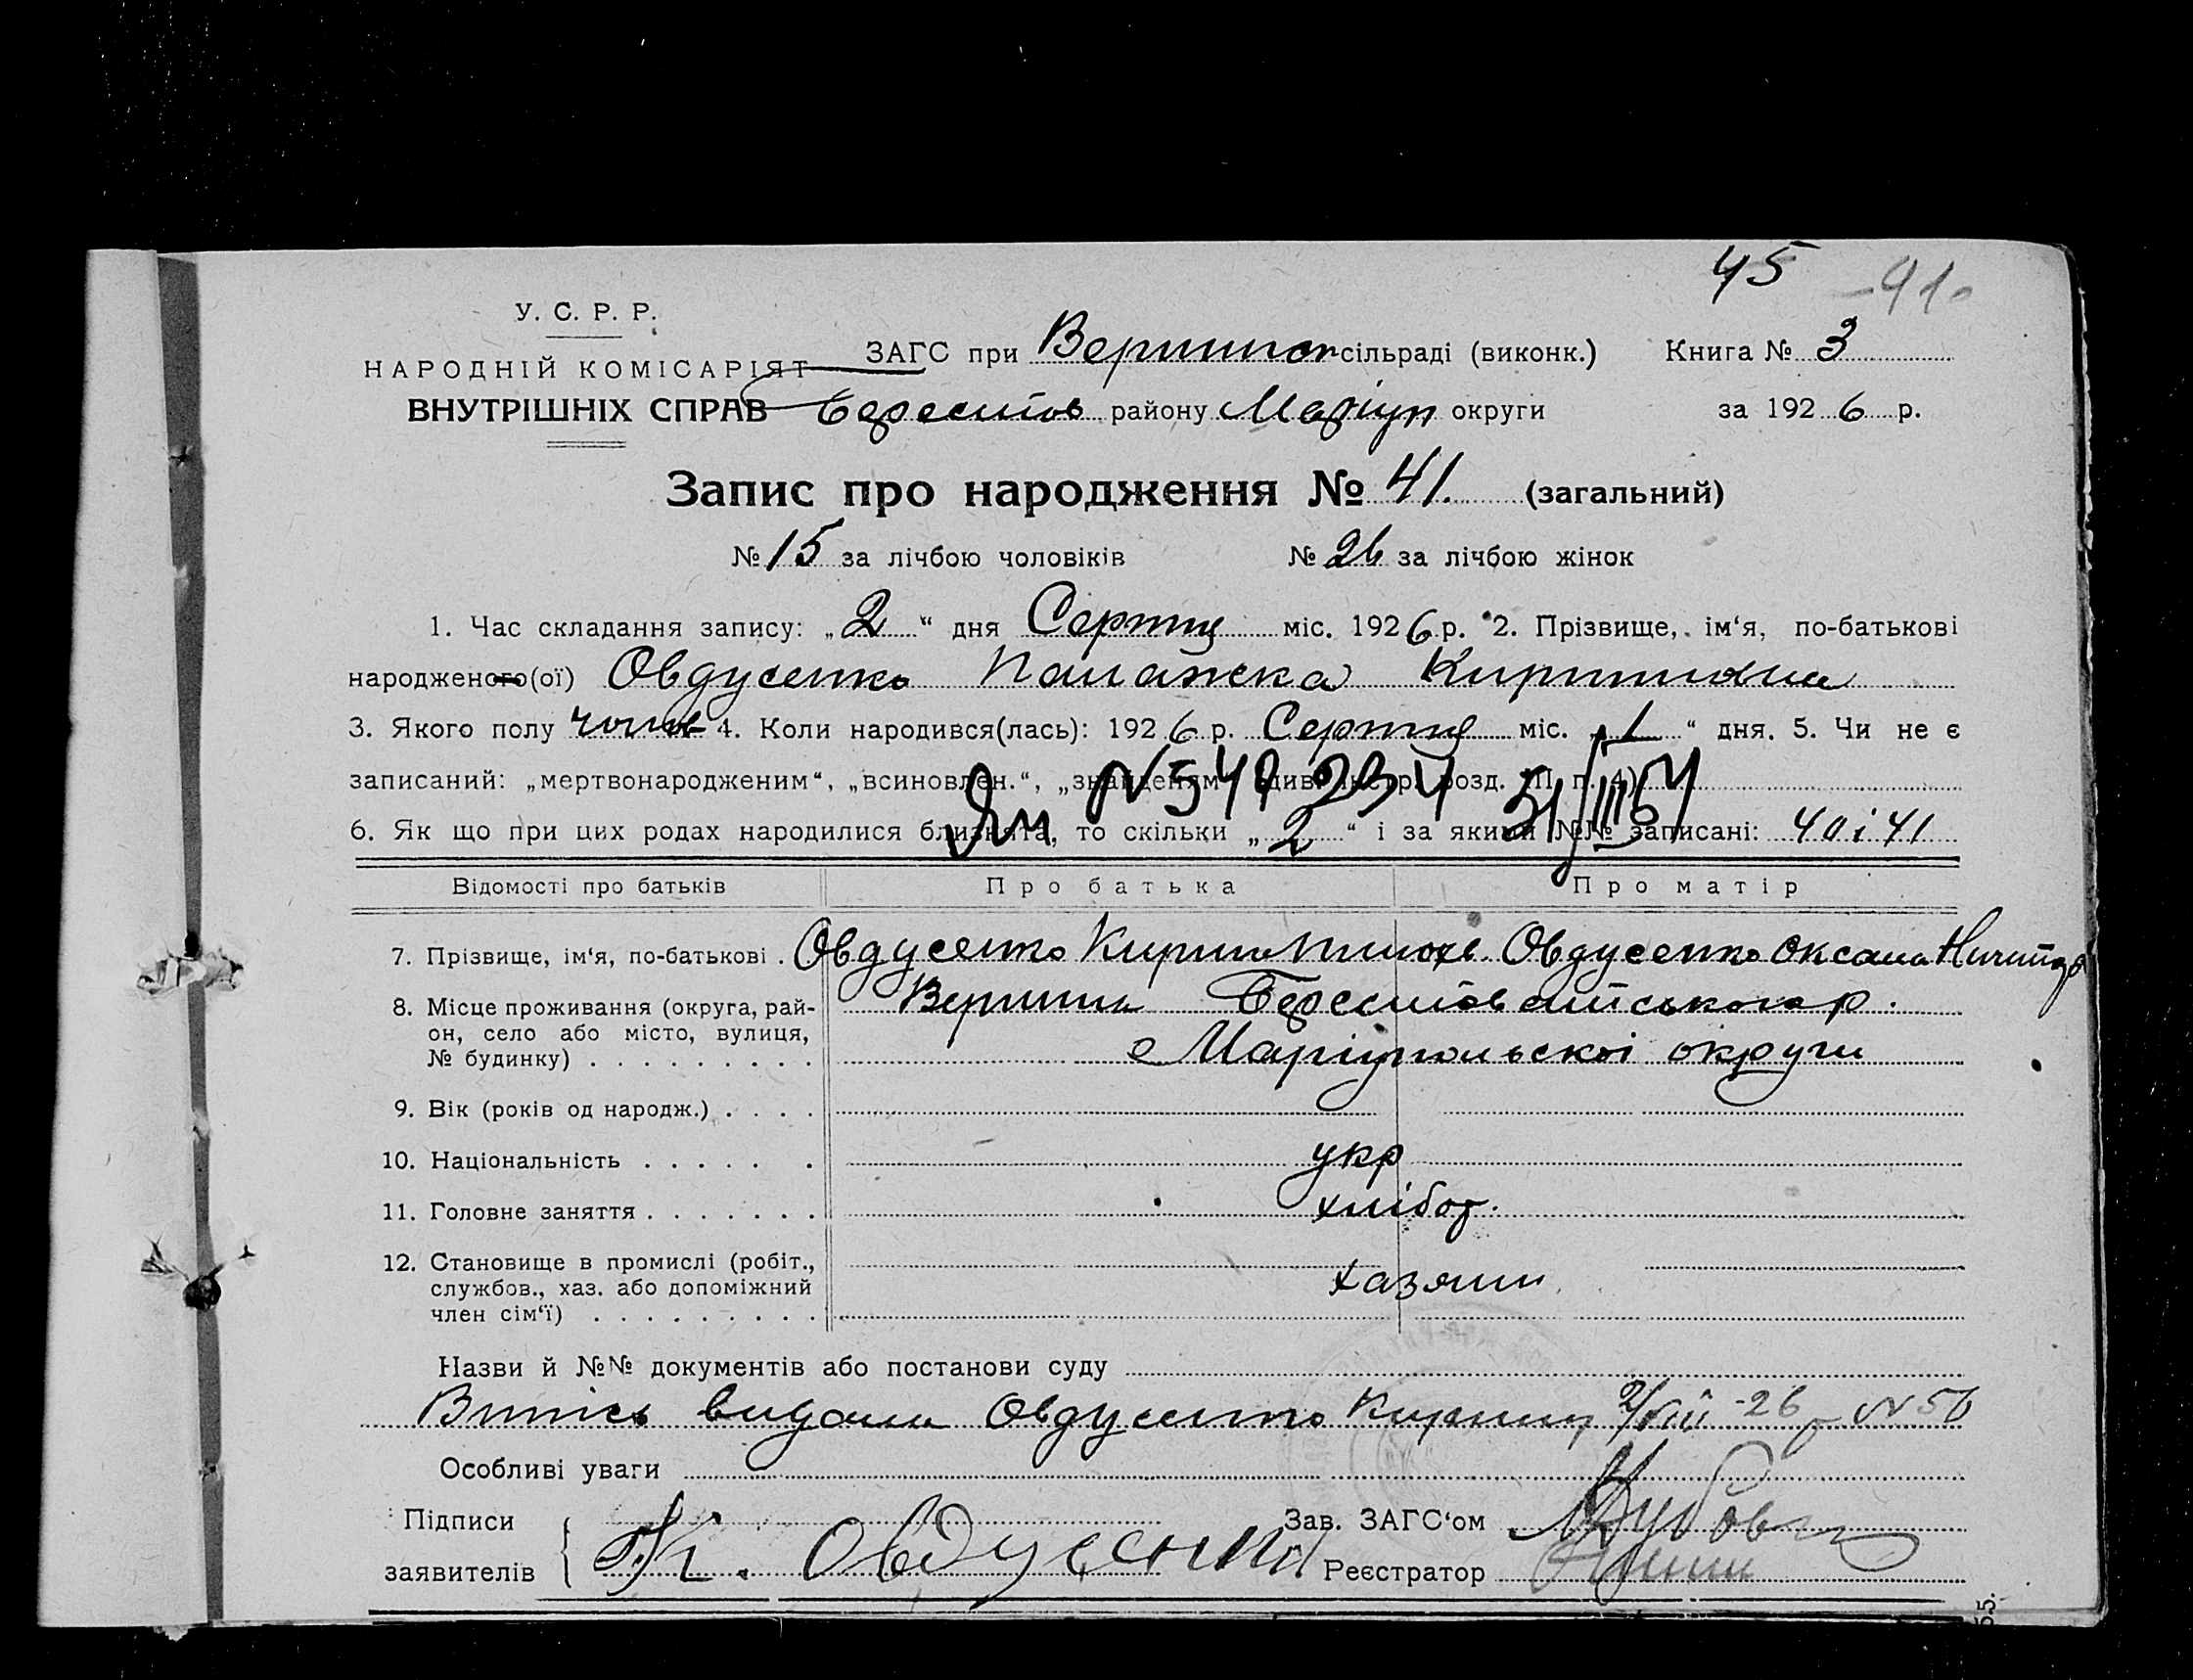 45 -41-
У. С. Р. Р.
НАРОДНІЙ КОМІСАРІЯТ
ВНУТРІШНІХ СПРАВ
ЗАГС при сільраді (виконк.) Книга № 3
Берестов району Маріуп округи за 1926 р.
Запис про народження № 41. (загальний)
№ 15 за лічбою чоловіків № 26 за лічбою жінок
1. Час складання запису: „2“ дня Серпня міс. 1926 р. 2. Прізвище, ім‘я, по-батькові
народженого(ої) Овдусенко Палажка Кирилівна
3. Якого полу 4. Коли народився(лась): 1926 р. Серпня міс. „1“ дня. 5. Чи не є
записаний: „мертвонародженим“, „всиновлен.“, розд. III п. 4)
N 549234
6. Як що при цих родах народилися близнята, то скільки „2“ і за якими №№ записані: 40 і 41
Відомості про батьків Про батька Про матір
7. Прізвище, ім‘я, по-батькові . Овдусенко Кирило Овдусенко Оксана
8. Місце проживання (округа, рай-
он, село або місто, вулиця,
№ будинку) . . . . . . . . .
Вершина Берестов р.
Маріупольскоі округи
9. Вік (років од народж.) . . . .
10. Національність . . . . . . укр
11. Головне заняття . . . . . . . хлібор.
12. Становище в промислі (робіт.,
службов., хаз. або допоміжний
член сім‘ї) . . . . . . . . . .
хазяїн
Назви й №№ документів або постанови суду
Випись видана Овдусенко Кирилу 2/VIII -26 р N 56
Особливі уваги
Підписи
заявителів
К. Овдусенко
Зав. ЗАГС‘ом
Реєстратор